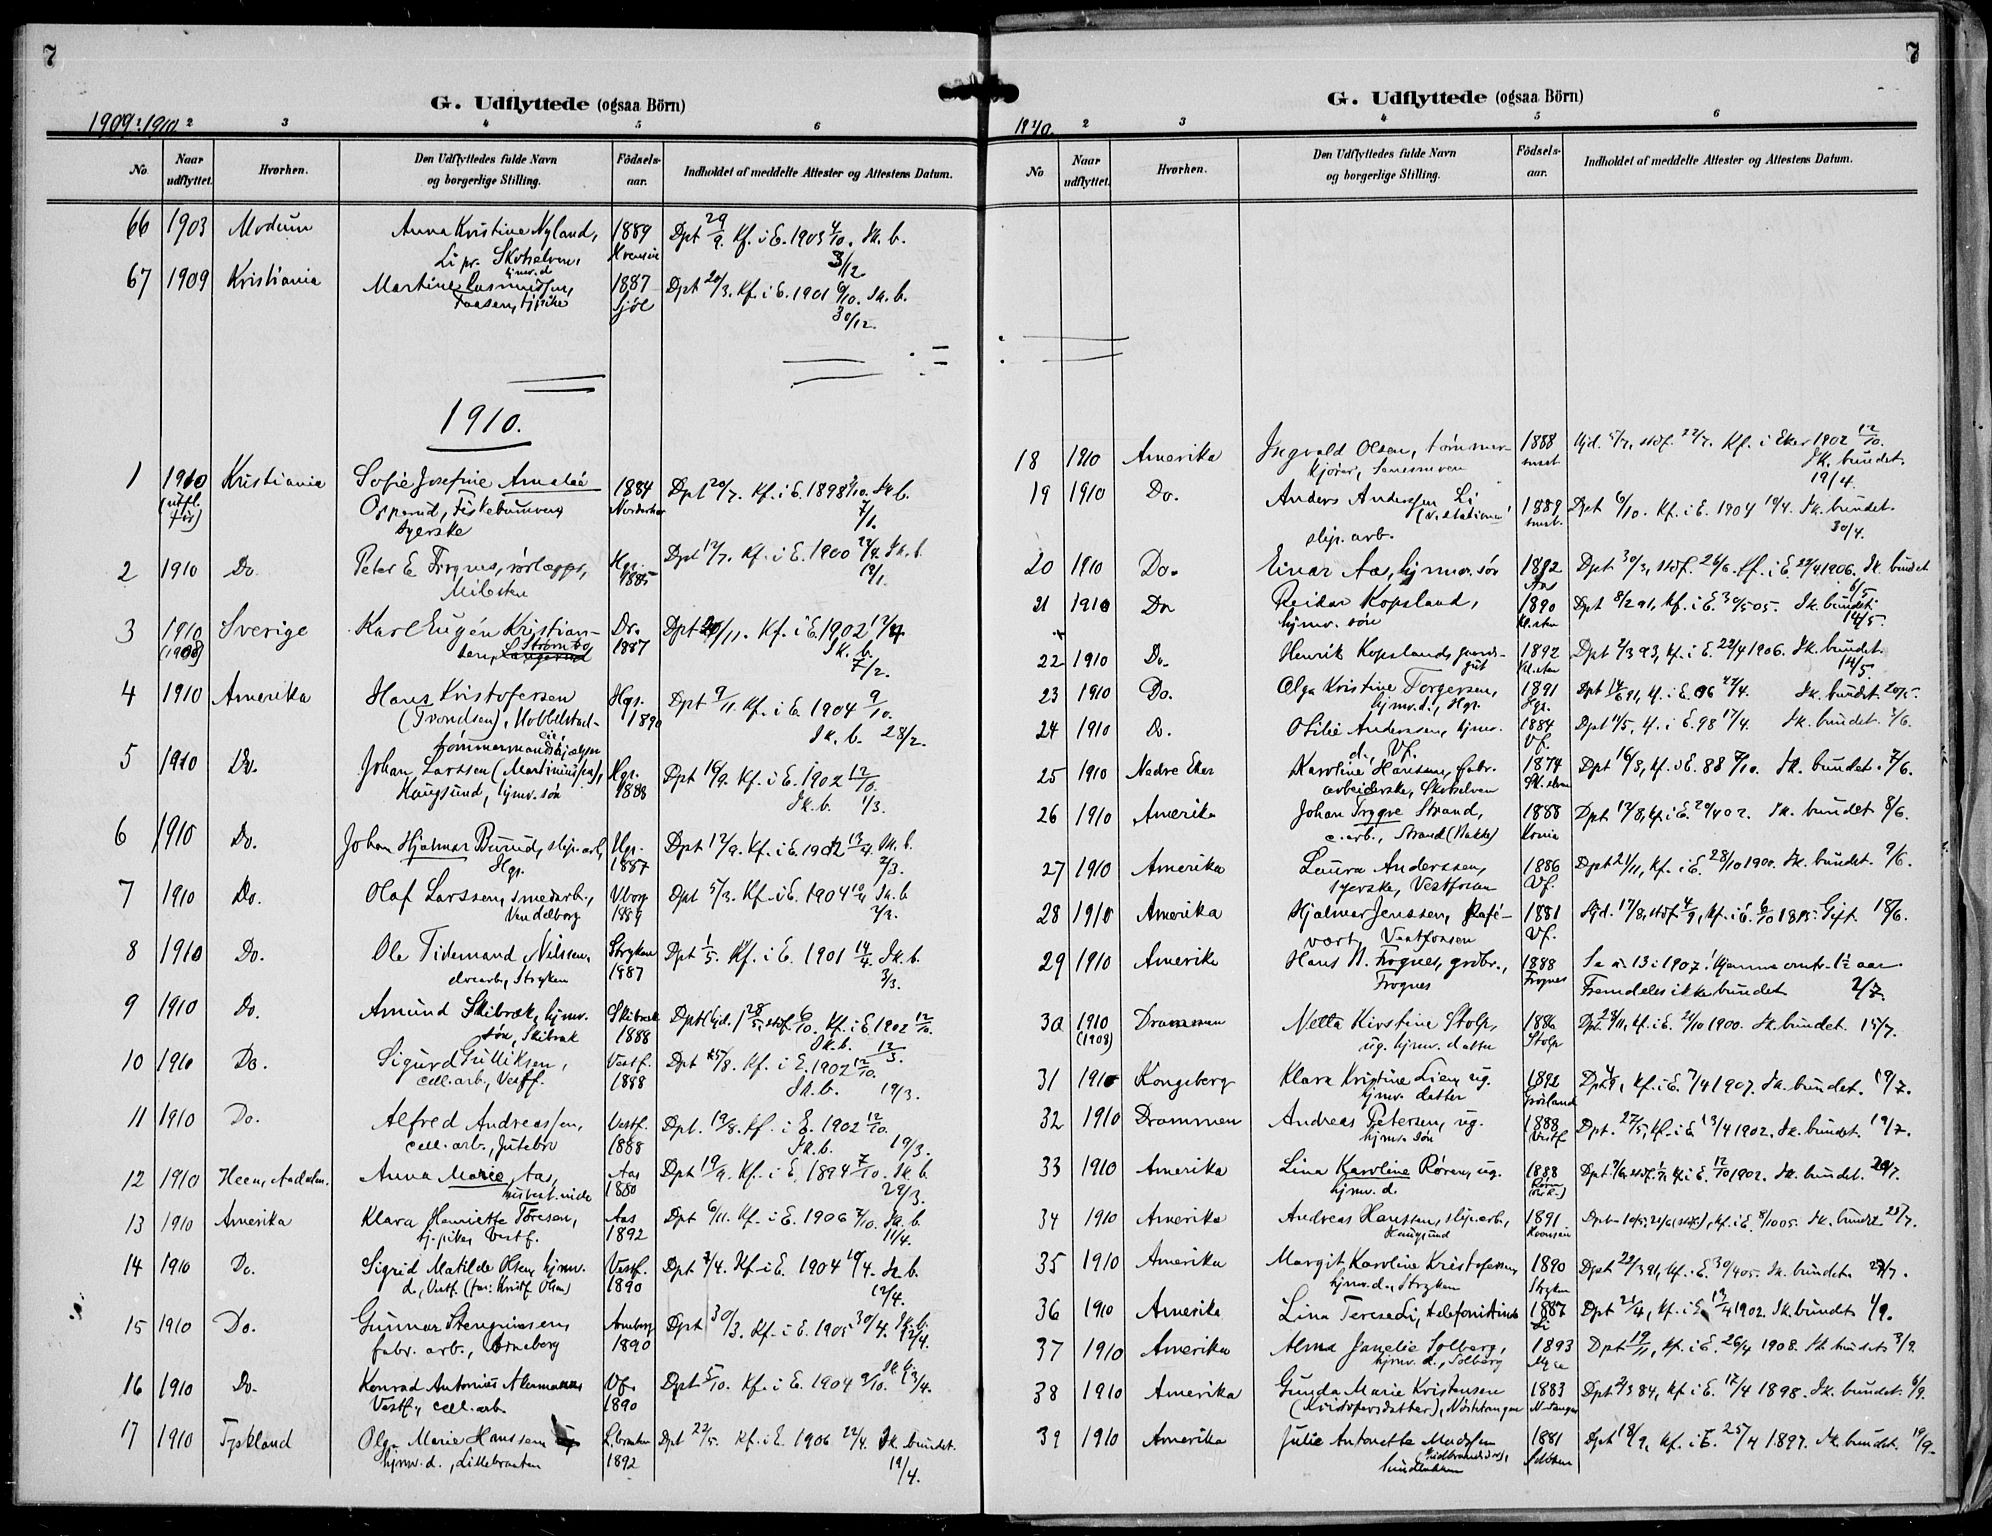 7
G. Udflyttede (ogsaa Börn)
1909-1910
2 3 4 5 6
No. Naar udflyttet. Hvorhen. Den Udflyttedes fulde Navn og borgerlige Stilling. Födsels-aar. Indholdet af meddelte Attester og Attestens Datum.
66 1903 Modum Anna Kristine Nyland, 1889 Dpt 29/9. Kf. i E. 1903 4/10. Sk. b.
Li pr. Skotselven, 3/12.
67 1909 Kristiania Martine Rasmussen, 1887 Dpt 20/3. Kf. i E. 1901 6/10. Sk. b.
30/12.
1910.
1 1910 Kristiania Sofie Josefine Amalie 1884 Dpt 20/7. Kf. i E. 1898 Sk b.
(utfl. før) Opperud, Norderhov 7/1.
syerske
2 1910 Do. Peter E Frognes, Hgr. Dpt 12/7. Kf. i E. 1900 Sk. b.
1885 12/1.
3 1910 Sverige Karl Eugén Kristian- Do. Dpt /11. Kf. i E. 1902 13/4
(1908) sen, Strømbo 1887 Sk. b.
7/2.
4 1910 Amerika Hans Kristofersen Hgr. Dpt 9/11 Kf. i E. 1904 9/10.
(Trondsen), 1890 Sk. b. 28/2.
5 1910 Do. Johan Larssen (Martiniussen), Hgr. Dpt 16/9. Kf. i E. 1902 12/10.
Haugsund, hjmv. søn 1888 Sk. b. 1/3.
6 1910 Do. Johan Hjalmar Burud, slip. arb, Hgr. Dpt 12/9. Kf. i E. 1902 13/4 Sk. b.
Hgr. 1887 2/3.
7 1910 Do. Olaf Larssen, smedarb., Vborg Dpt 5/3. Kf. i E. 1904 Sk. b
Vendelborg 1889 2/3.
8 1910 Do. Ole Tidemand Nilssen, Stryken Dpt 1/5. Kf. i E. 1901 14/4 Sk. b.
Stryken 1887 3/3.
9 1910 Do. Amund Skibræk, hjmv. Skibræk Dpt (hjd.) 28/5, stdf. 6/10. Kf. i E 1902 12/10.
søn, Skibræk 1888 Sk. b. 12/3.
10 1910 Do. Sigurd Gulliksen, Vestf. Dpt 25/8. Kf. i E. 1902 12/10.
cell. arb., Vestf. 1888 Sk. b. 19/3.
11 1910 Do. Alfred Andreassen, Vestf. Dpt. 19/8. Kf. i E. 1902 12/10.
cell. arb., Jutebro 1888 Sk. b. 19/3.
12 1910 Heen, Aadalen. Anna Marie Aas, Aas Dpt 19/9. Kf. i E. 1894 7/10. Sk. b
1880 29/3.
13 1910 Amerika Klara Henriette Toresen, Aas Dpt 6/11. Kf. i E. 1906 7/10. Sk. b
tj. pike, Vestf. 1892 11/4.
14 1910 Do. Sigrid Matilde Olsen, hjmv. Vestf. Dpt 7/4. Kf. i E. 1904 Sk. b.
d., Vestf. (far: Kristf. Olsen) 1890 12/4.
15 1910 Do. Gunnar Stengrimsen, Arneberg Dpt 30/3. Kf. i E. 1905 30/4. Sk. b.
fabr. arb., Arneberg 1890 12/4.
16 1910 Do. Konrad Antonius Vf. Dpt 5/10. Kf. i E. 1904 9/10. Sk. b.
Vestf., cell. arb. 1890 13/4.
17 1910 Tyskland Olga Marie Hanssen L.braaten Dpt 22/5. Kf. i E. 1906 22/4. Sk. bundet.
hjmv. d., Lillebraaten 1892 19/4.
7
G. Udflyttede (ogsaa Börn)
1910.
2 3 4 5 6
No Naar udflyttet. Hvorhen. Den Udflyttedes fulde Navn og borgerlige Stilling. Födsels-aar. Indholdet af meddelte Attester og Attestens Datum.
18 1910 Amerika Ingvald Olsen, tømmer- 1888 Hjd. stdf. 22/7. Kf. i Eker 1902 12/10.
kjører, Sk. bundet.
19/4.
19 1910 Do. Anders Anderssen Li 1889 Dpt 6/10. Kf. i E. 1904 Sk. bundet.
slip. arb. 30/4.
20 1910 Do. Einar Aas, hjmv. søn 1892 Dpt 30/3, stdf. 26/6. Kf. i E. 22/4 1906. Sk. bundet
Aas 6/5.
21 1910 Do. Reidar Kopsland, 1890 Dpt 8/2 91, kf. i E. 30/5 05. Sk. bundet.
hjmv. søn 14/5.
22 1910 Do. Henrik Kopsland, gaards- 1892 Dpt 2/3 93, kf. i E. 22/4 1906. Sk. bundet.
gut 14/5.
23 1910 Do. Olga Kristine Torgersen, 1891 Dpt 14/6 91, kf. i E. 06 22/4. Sk. bundet 20/5.
hjmv. d., Hgr. Hgr.
24 1910 Do. Otilie Anderssen, hjmv. 1884 Dpt kf. i E. 98 17/4. Sk. bundet. 3/6.
d. Vf. Vf.
25 1910 Nedre Eker Karoline Hansen, fabr. 1874 Dpt 16/8, kf. i E. 88 7/10. Sk. bundet. 7/6.
arbeiderske, Skotselven
26 1910 Amerika Johan Trygve Strand, 1888 Dpt 13/8, kf. i E. 20/4 02. Sk. bundet 8/6.
c. arb., Strand (Bakke) Kr.nia
27 1910 Amerika Laura Anderssen, 1886 Dpt 21/11, Kf. i E. 28/10 1900. Sk. bundet. 9/6.
syerske, Vestfossen Vf.
28 1910 Amerika Hjalmar Jenssen, Kafé- 1881 Hjd. 17/8, stdf 4/9, kf. i E. 6/10 1895. Gift. 18/6.
vært, Vestfossen Vf.
29 1910 Amerika Hans N. Frognes, grdbr., 1888 Se nr 13 i 1907! Hjemme omtr. 1½ aar.
Frognes Frognes Fremdeles ikke bundet 2/7.
30 1910 Drammen Netta Kirstine Stolp, 1886 Dpt. 28/11, kf. i E. 21/10 1900. Sk. bundet. 15/7.
(1908) ug. hjmv. datter Stolp
31 1910 Kongsberg Klara Kristine Lien, ug. 1892 Dpt. kf. i E. 7/4 1907. Sk. bundet. 19/7.
hjmv. datter
32 1910 Drammen Andreas Petersen, ug. 1888 Dpt. 27/5, kf. i E 13/4 1902. Sk. bundet. 19/7.
hjmv. søn Vestf.
33 1910 Amerika Lina Karoline Røren, ug. 1888 Dpt kf. i E. 12/10 1902. Sk. bundet. 20/7.
hjmv. d.
34 1910 Amerika Andreas Hanssen, slip. arb., 1891 kf. i E. 8/10 05. Sk. bundet 25/7.
Haugsund
35 1910 Amerika Margit Karoline Kristofersen, 1890 Dpt 22/3 91, kf. i E. 30/4 05. Sk. bundet 27/7.
hjmv. d., Stryken Stryken
36 1910 Amerika Lina Terese Li, telefonistinde 1887 Dpt 21/4, kf. i E 13/4 1902. Sk. bundet 1/9.
Li
37 1910 Amerika Alma Janelie Solberg, 1893 Dpt 19/11, kf. i E. 26/4 1908. Sk bundet 3/9.
hjmv. d., Solberg
38 1910 Amerika Gunda Marie Kristensen 1883 Dpt 2/3 84, kf i E. 17/4 1898. Sk. bundet. 6/9.
(Kristofersdatter), Nøstetangen N.tangen
39 1910 Amerika Julie Antonette Madssen 1881 Dpt 18/9, kf. i E. 25/4 1897. Sk. bundet. 19/9.